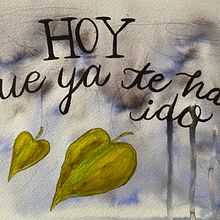 HOY
ue ya te ha
ido